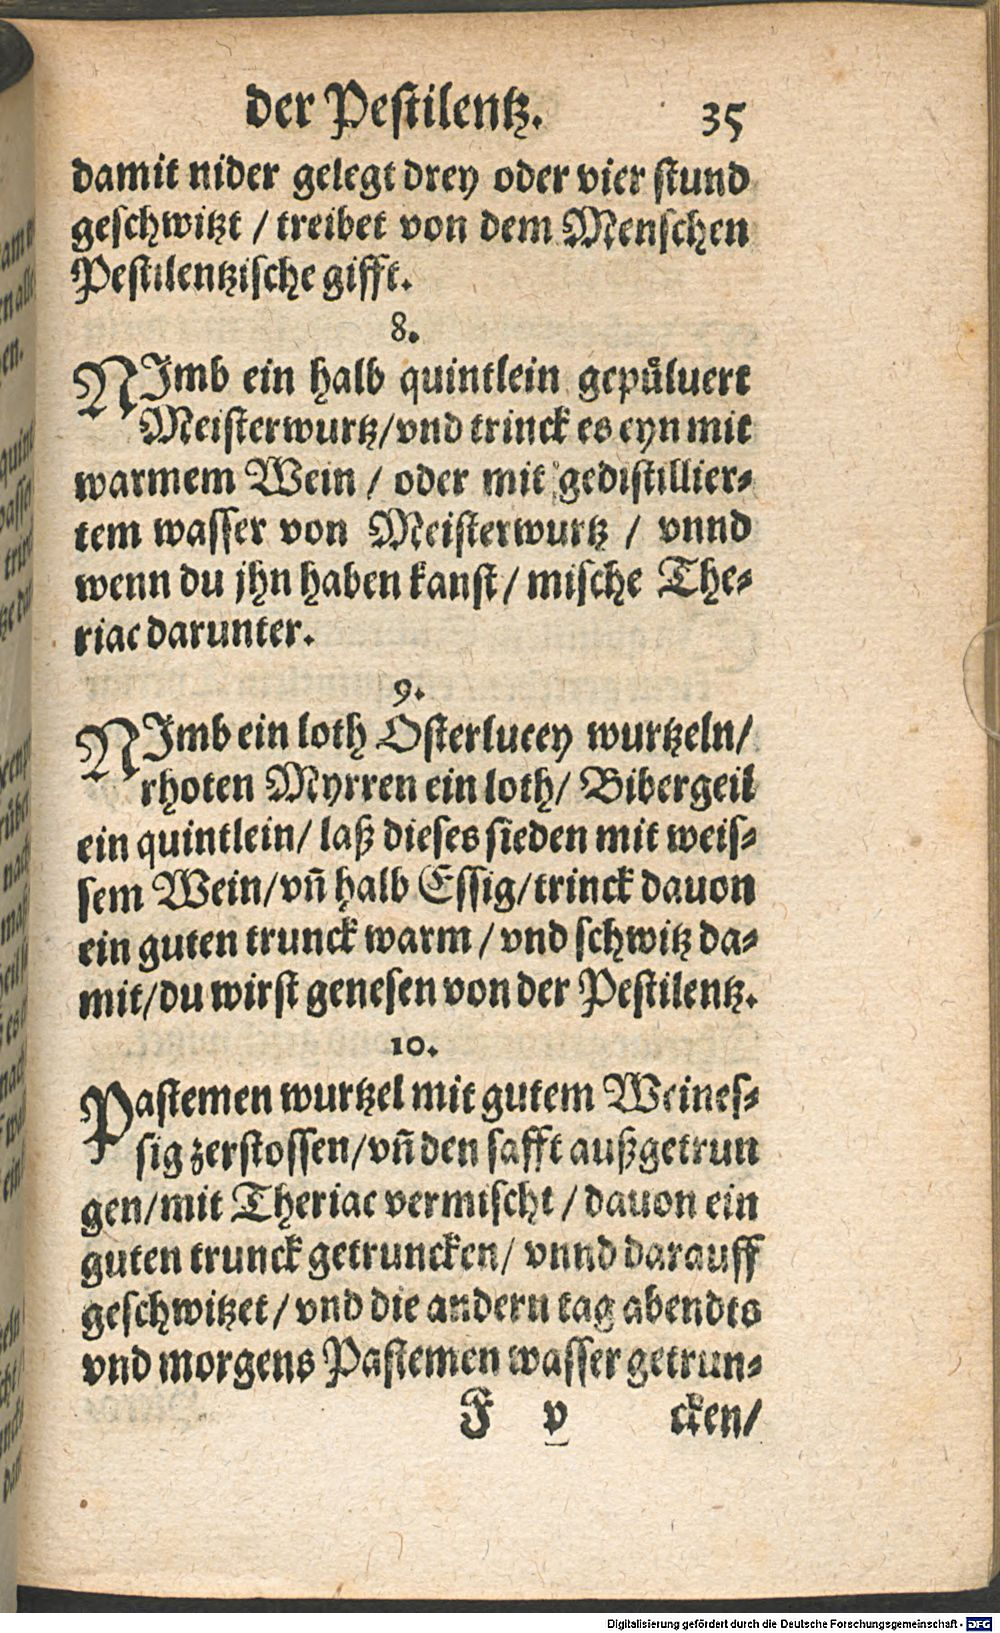 der Pestilentz. 35
damit nider gelegt drey oder vier stund
geschwitzt / treibet von dem Menschen
Pestilentzische gifft.
8.
NImb ein halb quintlein gepůluert
Meisterwurtz/vnd trinck es eyn mit
warmem Wein / oder mit gedistillier-
tem wasser von Meisterwurtz / vnnd
wenn du jhn haben kanst / mische The-
riac darunter.
9.
NImb ein loth Osterlucey wurtzeln/
rhoten Myrren ein loth/ Bibergeil
ein quintlein/ laß dieses sieden mit weis-
sem Wein/vn̄ halb Essig/trinck dauon
ein guten trunck warm / vnd schwitz da-
mit/du wirst genesen von der Pestilentz.
10.
Pastemen wurtzel mit gutem Weines-
sig zerstossen/vn̄ den safft außgetrun
gen/mit Theriac vermischt / dauon ein
guten trunck getruncken/ vnnd darauff
geschwitzet / vnd die andern tag abendts
vnd morgens Pastemen wasser getrun-
F v cken/
Digitalisierung gefördert durch die Deutsche Forschungsgemeinschaft - DFG